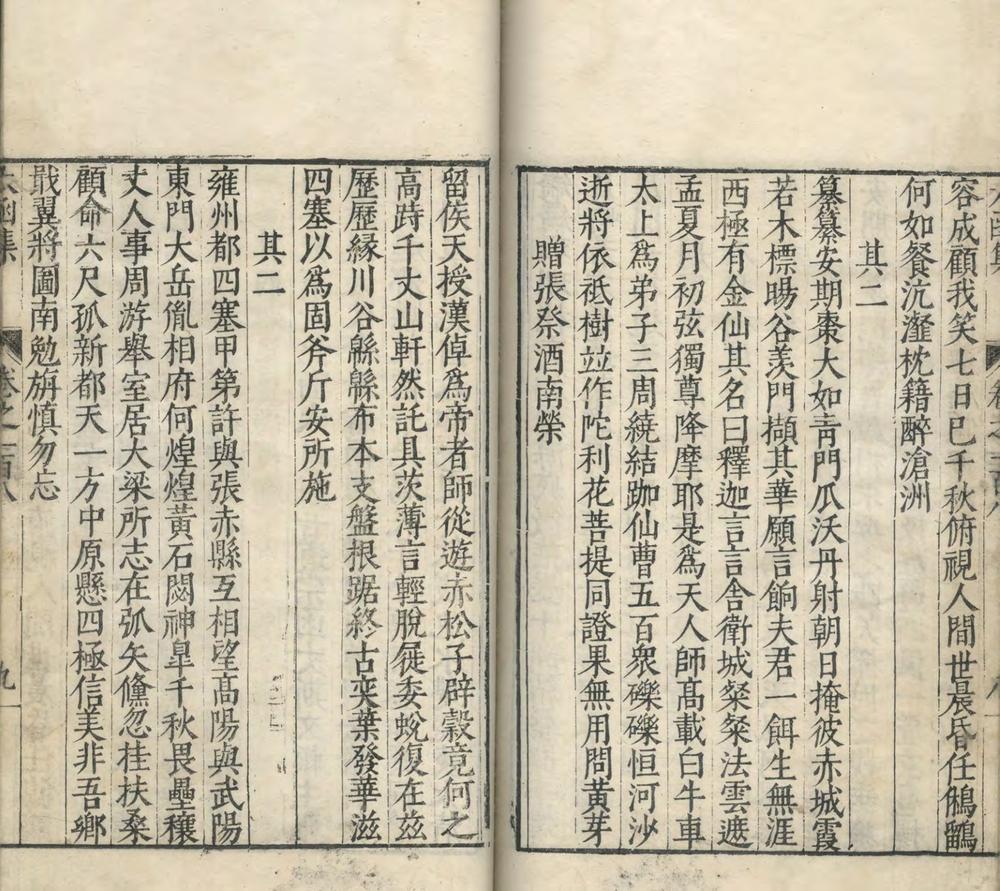 容成顧我笑七日已千秋俯視人間世晨昏任鵂鶹
何如餐沆瀣枕籍醉滄洲
其二
纂纂安期棗大如青門瓜沃丹射朝日掩彼赤城霞
若木標暘谷羨門擷其華願言餉夫君一餌生無涯
西極有金仙其名曰釋迦言言舎衛城粲粲法雲遮
孟夏月初弦獨尊降摩耶是爲天人師高載白牛車
太上爲弟子三周繞結跏仙曹五百衆礫礫恒河沙
逝將依祇樹並作陀利花菩提同證果無用問黃芽
贈張祭酒南榮
留侯天授漢倬爲帝者師從遊赤松子辟穀竟何之
高跱千丈山軒然託具茨薄言輕脫屣委蛻復在茲
歷歷緣川谷緜緜布本支盤根踞終古奕葉發華滋
四塞以爲固斧斤安所施
其二
雍州都四塞甲第許與張赤縣互相望高陽與武陽
東門大岳胤相府何煌煌黃石閟神皐千秋畏壘穰
丈人事周游舉室居大梁所志在弧矢儵忽桂扶桑
顧命六尺孤新都天一方中原懸四極信美非吾鄉
戢翼將圖南勉旃慎勿忘
太函集
卷之一百八
九